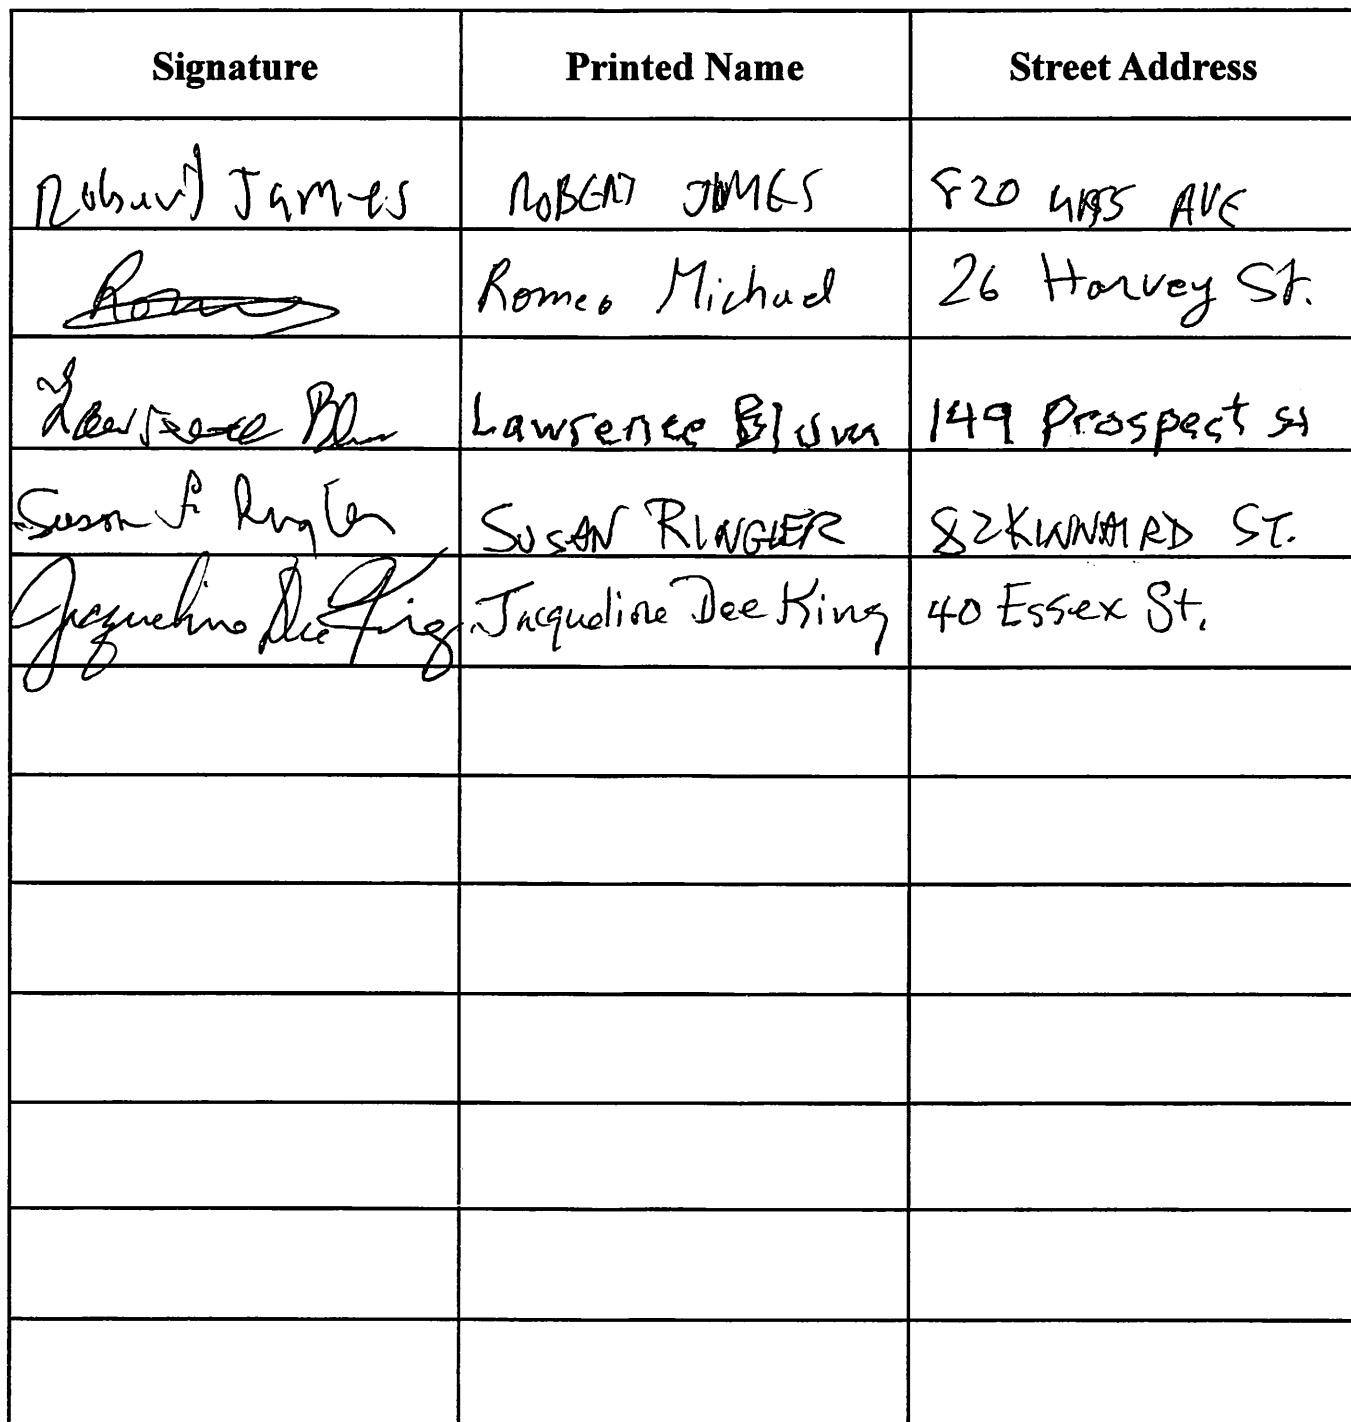 Signature Printed Name Street Address
Robert James ROBERT JAMES 820 MASS AVE
Romeo Michael 26 Harvey St.
Lawrence Blum Lawrence Blum 149 Prospect St
Susan F. Ringler SUSAN RINGLER 82 KINNAIRD ST.
Jacqueline Dee King Jacqueline Dee King 40 Essex St.